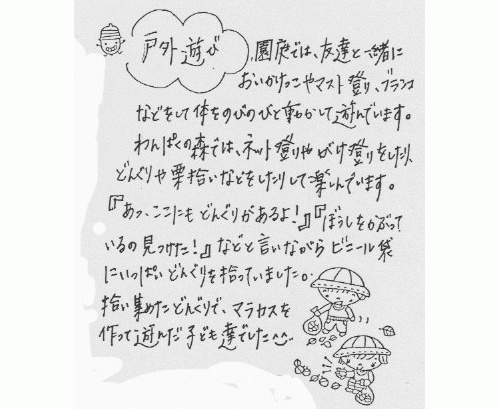 戸外遊び
園庭では、友達と一緒に
おいかけっこやマスト登り、ブランコ
などをして体をのびのびと動かして遊んでいます。
わんぱくの森では、ネット登りやがけ登りをしたり、
どんぐりや栗拾いなどをしたりして楽しんでいます。
『あっ、ここにもどんぐりがあるよ!』『ぼうしをかぶって
いるの見つけた!』などと言いながらビニール袋
にいっぱいどんぐりを拾っていました。
拾い集めたどんぐりで、マラカスを
作って遊んだ子ども達でした^^